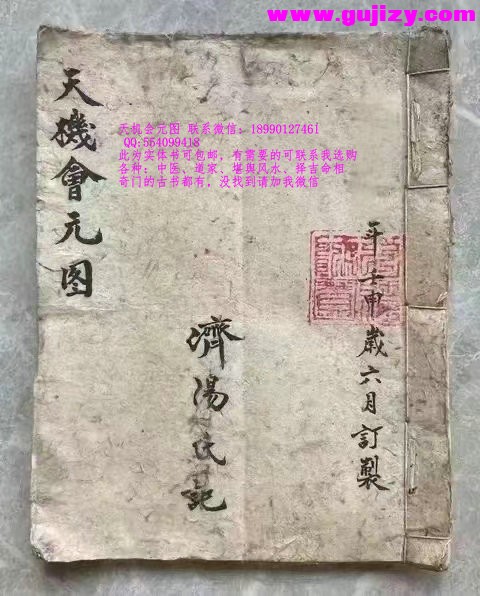 www.gujizy.com
天机会元图 联系微信：18990127461
QQ:554099418
此为实体书可包邮，有需要的可联系我选购
各种：中医、道家、堪舆风水、择吉命相
奇门的古书都有，没找到请加我微信
天機會元图
年壬申歲六月訂製
濟湯氏記